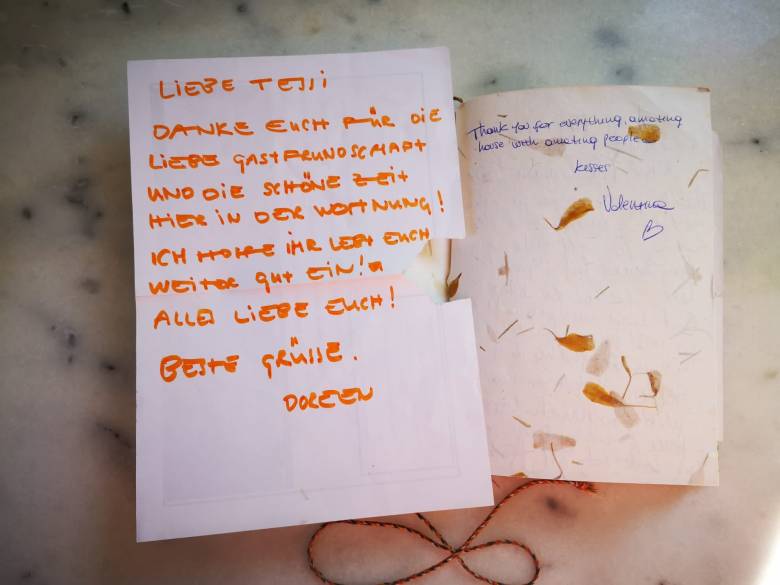 LIEBE TESSI
DANKE EUCH FÜR DIE
LIEBE GASTFRUNDSCHAFT
UND DIE SCHÖNE ZEIT
HIER IN DER WOHNUNG!
ICH HOFFE IHR LEBT EUCH
WEITER GUT EIN!
ALLES LIEBE EUCH!
BESTE GRÜSSE.
DOREEN
Thank you for everything, amazing
house with amazing people
kisses
Valentina